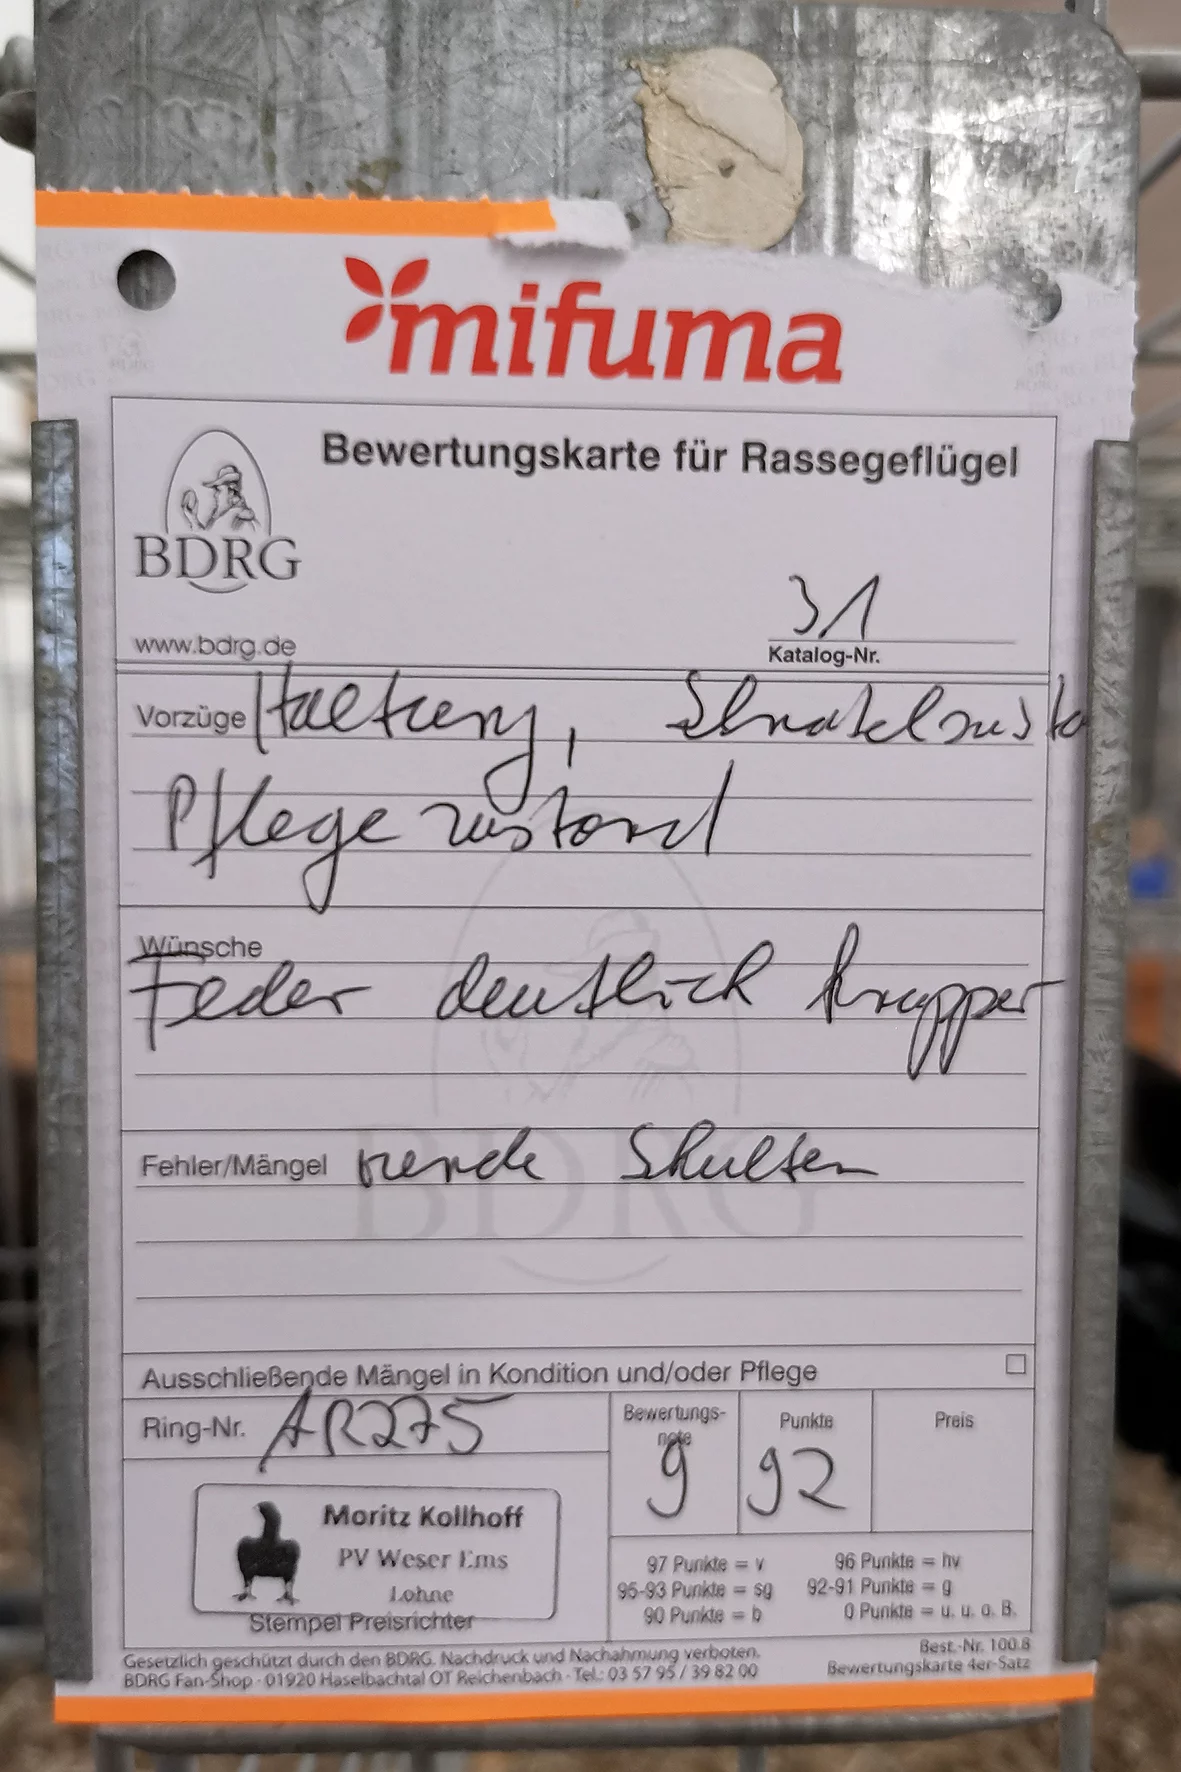 mifuma
Bewertungskarte für Rassegeflügel
BDRG
www.bdrg.de
31
Katalog-Nr.
Vorzüge Haltung, Schnabelzusta
Pflegezustand
Wünsche
Feder deutlich knapper
Fehler/Mängel runde Schultern
Ausschließende Mängel in Kondition und/oder Pflege
Ring-Nr. AR275
Bewertungs-
note
g
Punkte
92
Preis
Moritz Kollhoff
PV Weser Ems
Lohne
Stempel Preisrichter
97 Punkte = v 96 Punkte = hv
95-93 Punkte = sg 92-91 Punkte = g
90 Punkte = b 0 Punkte = u. u. o. B.
Gesetzlich geschützt durch den BDRG. Nachdruck und Nachahmung verboten.
BDRG Fan-Shop · 01920 Haselbachtal OT Reichenbach · Tel.: 03 57 95 / 39 82 00
Best.-Nr. 100.8
Bewertungskarte 4er-Satz